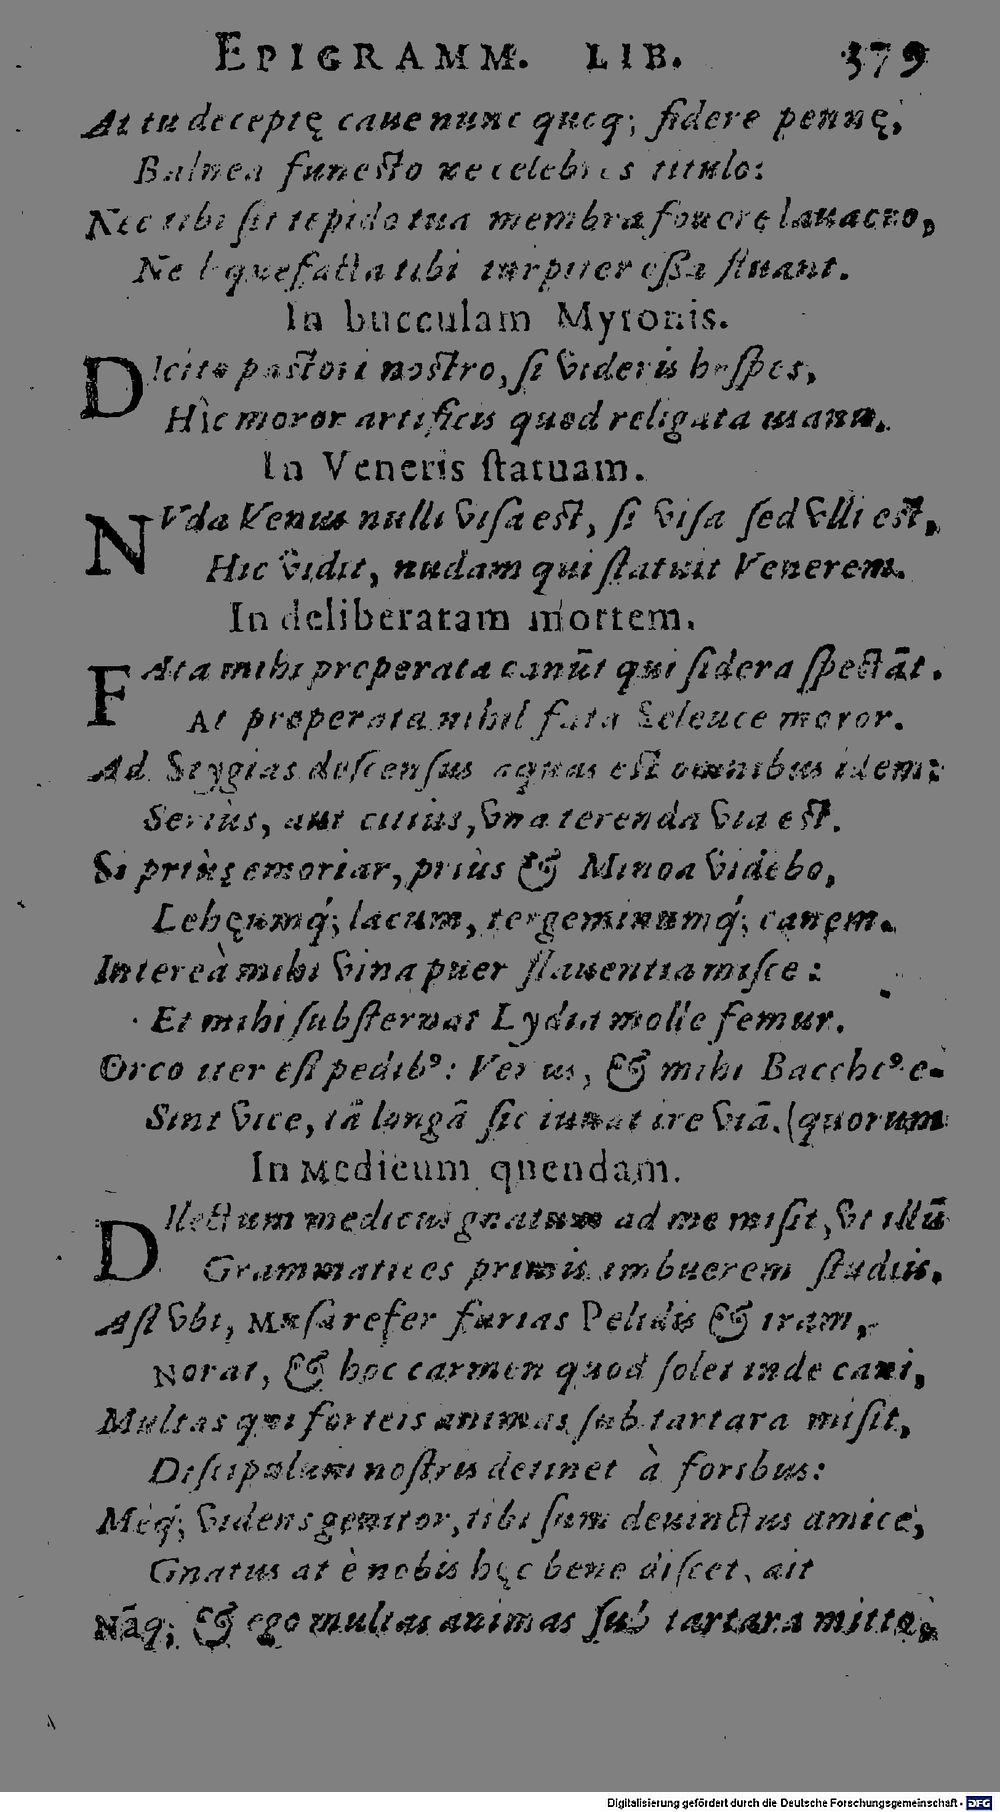 EPIGRAMM. LIB. 379
At tu deceptę caue nunc quoq; fidere pennę,
Balnea funesto ne celebres titulo:
Nec tibi sit tepido tua membra fouere lauacro,
Ne liquefacta tibi turpiter ossa fluant.
In bucculam Myronis.
DIcito pastori nostro, si videris hospes,
Hîc moror artificis quod religata manu.
In Veneris statuam.
NVda Venus nulli visa est, si visa sed vlli est,
Hic vidit, nudam qui statuit Venerem.
In deliberatam mortem.
FAta mihi properata canūt qui sidera spectāt.
At properata nihil fata Seleuce moror.
Ad Stygias descensus aquas est omnibus idem:
Seriùs, aut citiùs, vna terenda via est.
Si priùs emoriar, priùs & Minoa videbo,
Lehęumq́; lacum, tergeminumq́; canem.
Intereà mihi vina puer flauentia misce:
Et mihi substernat Lydia molle femur.
Orco iter est pedibꝰ: Venus, & mihi Bacchꝰ e-
Sint vice, tā longā sic iuuat ire viā. (quorum
In Medicum quendam.
DIlectum medicus gnatum ad me misit, vt illū
Grammatices primis imbuerem studiis.
Ast vbi, Musa refer furias Pelidis & iram,
Norat, & hoc carmen quod solet inde cani,
Multas qui forteis animas sub tartara misit,
Discipulum nostris detinet à foribus:
Méq́; videns genitor, tibi sum deuinctus amice,
Gnatus at è nobis hęc bene discet, ait
Nāq; & ego multas animas sub tartara mitto,
Digitalisierung gefördert durch die Deutsche Forschungsgemeinschaft - DFG